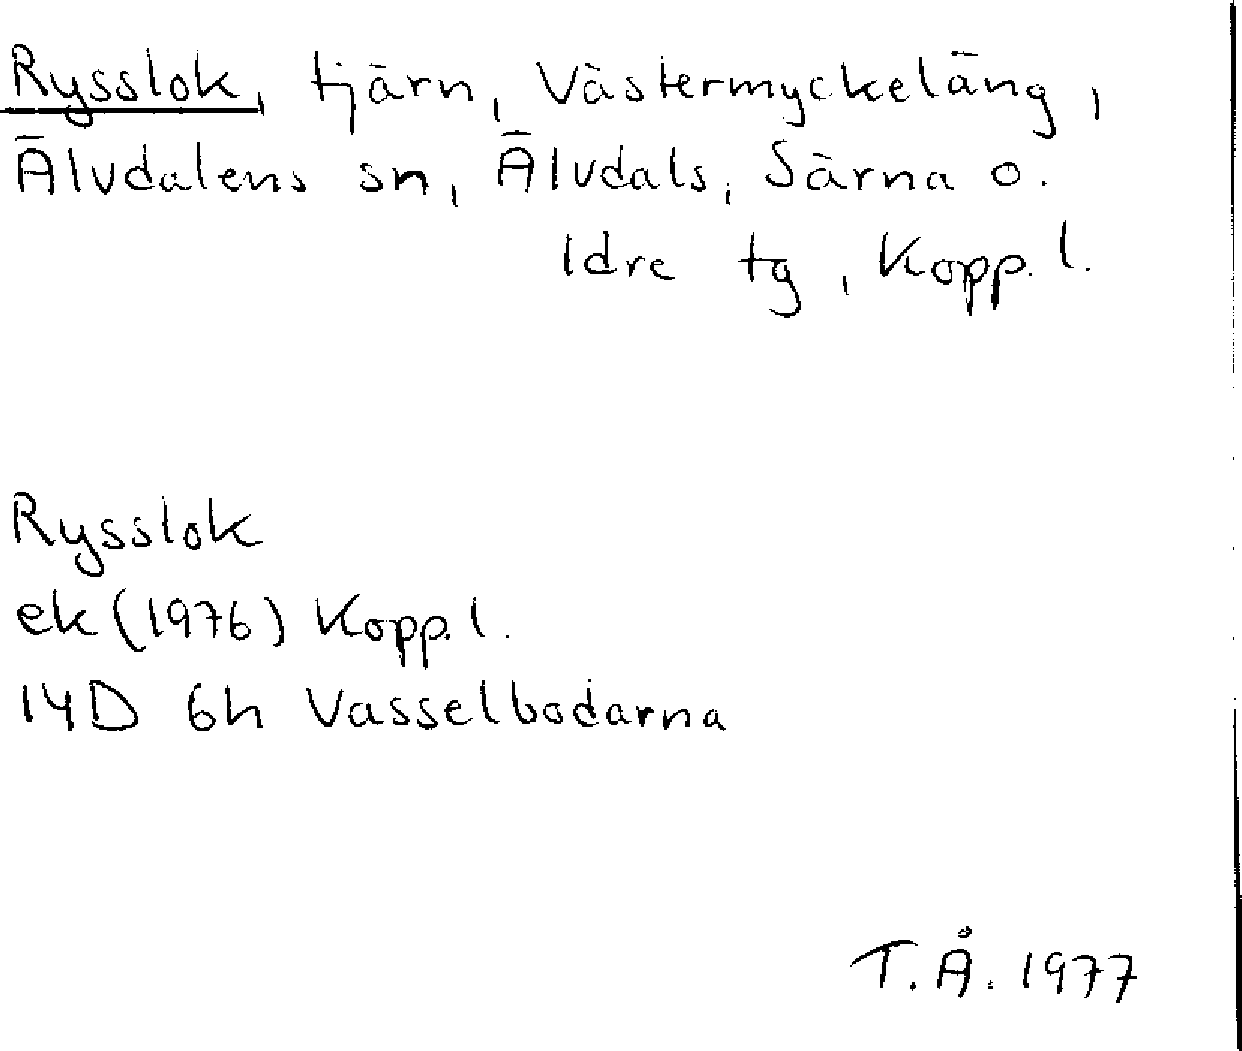 Rysslok, tjärn, Västermyckeläng,
Älvdalens sn, Älvdals, Särna o.
Idre tg, Kopp. l.
Rysslok
ek (1976) Kopp. l.
14D 6h Vasselbodarna
T.Å. 1977